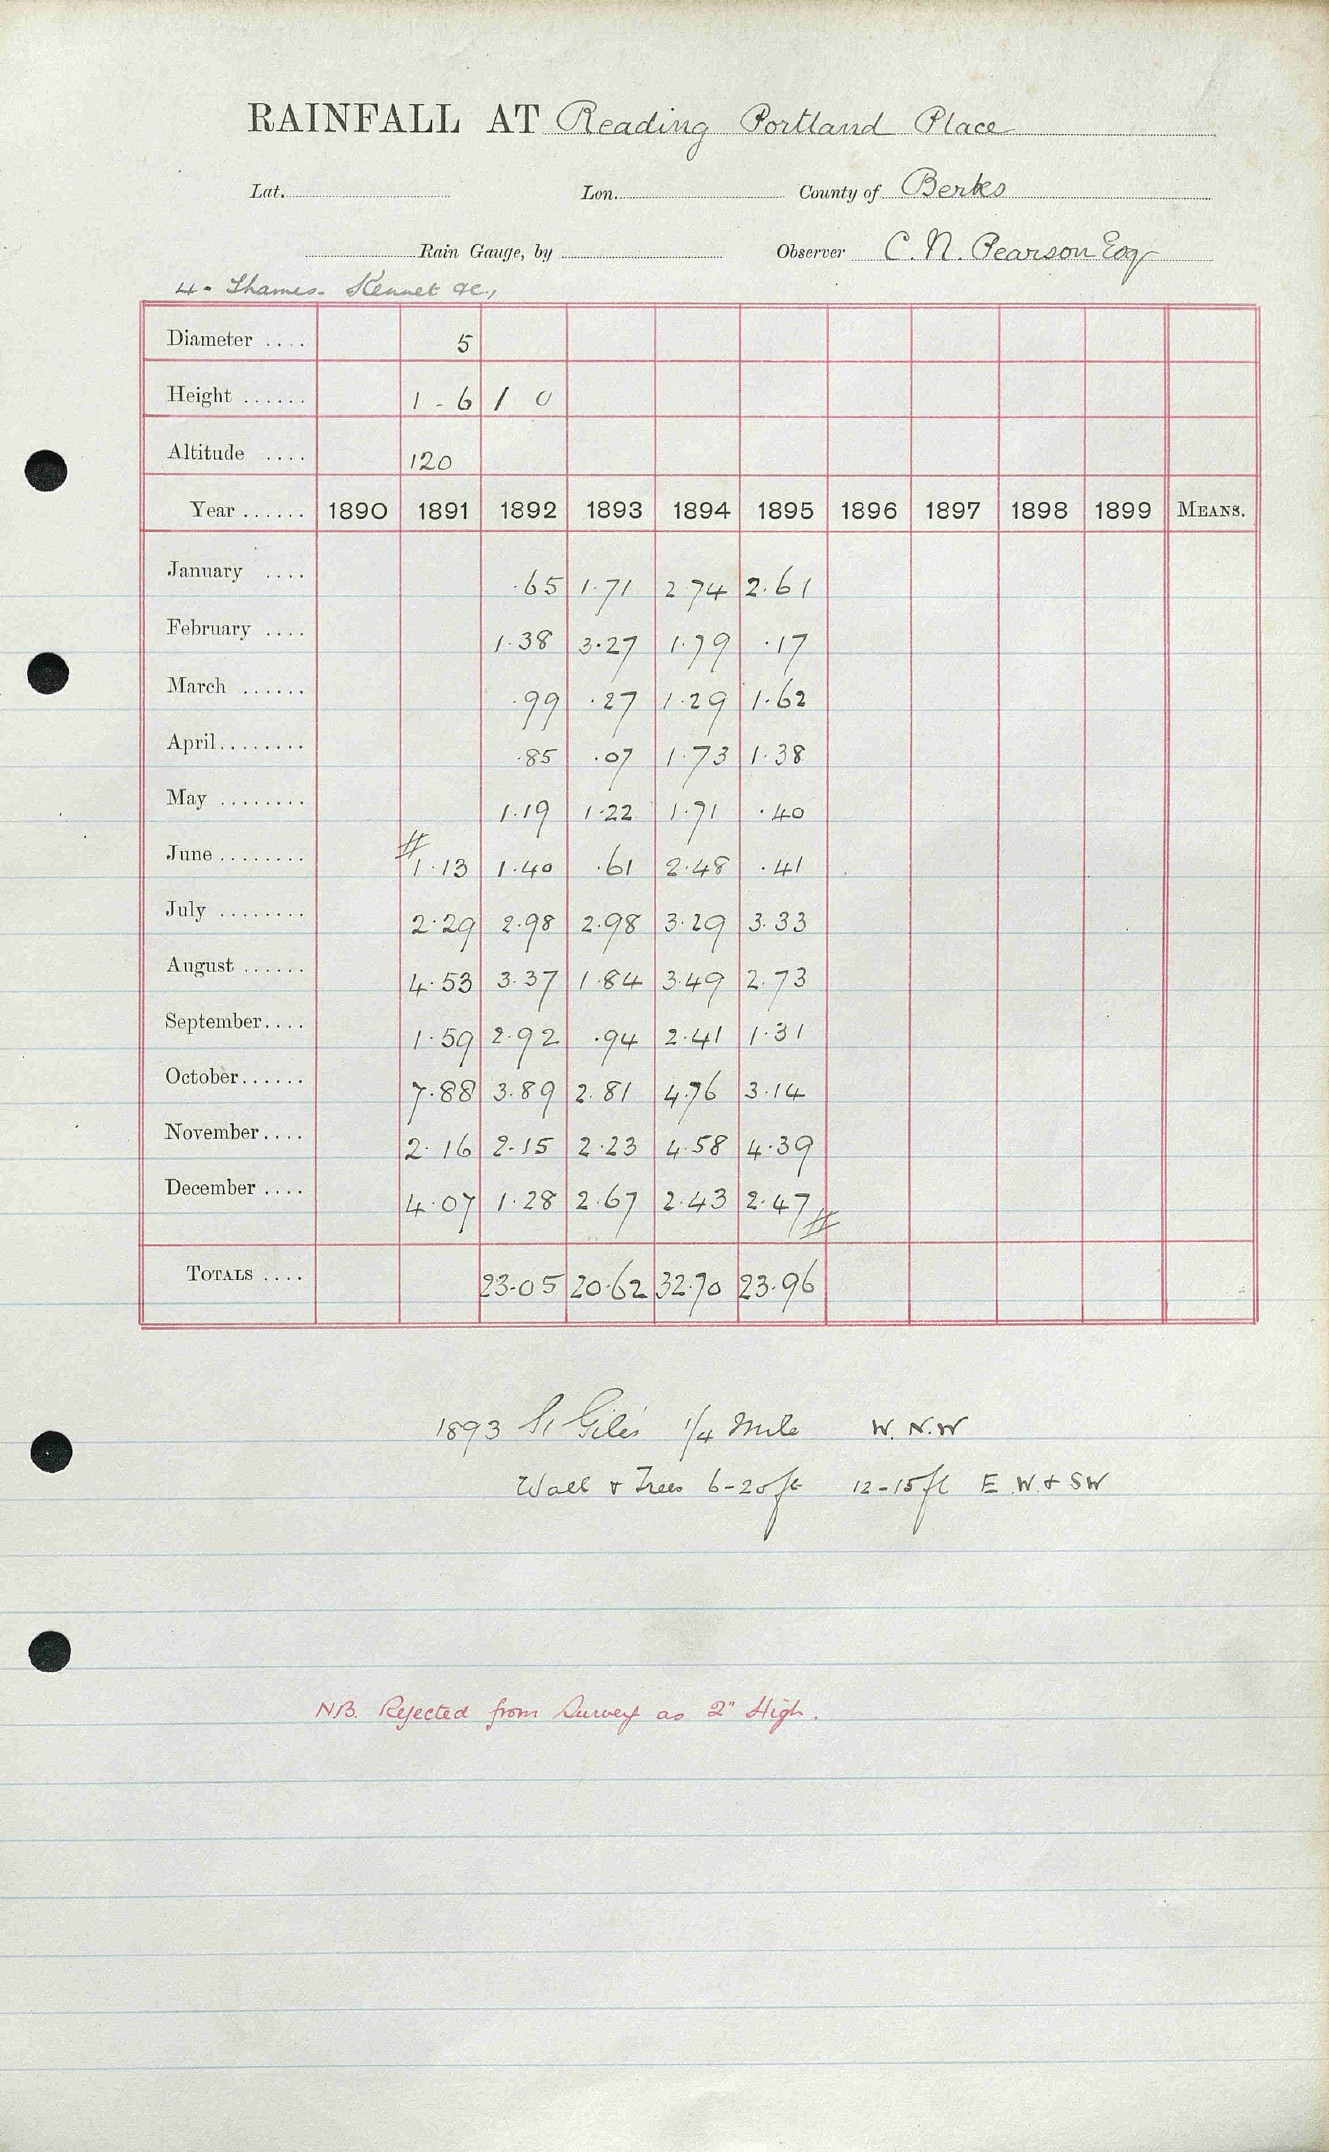 RAINFALL AT Reading Portland Place
Lat. Lon. County of Berks
Rain Gauge, by Observer C. N. Pearson Esq
4. Thames. Kennet &c.,
Diameter .... 5
Height ...... 1 - 6 1 0
Altitude .... 120
Year ...... 1890 1891 1892 1893 1894 1895 1896 1897 1898 1899 MEANS.
January .... .65 1.71 2.74 2.61
February .... 1.38 3.27 1.79 .17
March ...... .99 .27 1.29 1.62
April........ .85 .07 1.73 1.38
May ........ 1.19 1.22 1.71 .40
June ........ # 1.13 1.40 .61 2.48 .41
July ........ 2.29 2.98 2.98 3.29 3.33
August ...... 4.53 3.37 1.84 3.49 2.73
September.... 1.59 2.92 .94 2.41 1.31
October...... 7.88 3.89 2.81 4.76 3.14
November.... 2.16 2.15 2.23 4.58 4.39
December .... 4.07 1.28 2.67 2.43 2.47 #
TOTALS .... 23.05 20.62 32.70 23.96
1893 St Giles 1/4 Mile W. N.W
Wall & Trees 6-20ft 12-15ft E W. & SW
NB. Rejected from Survey as 2" High.